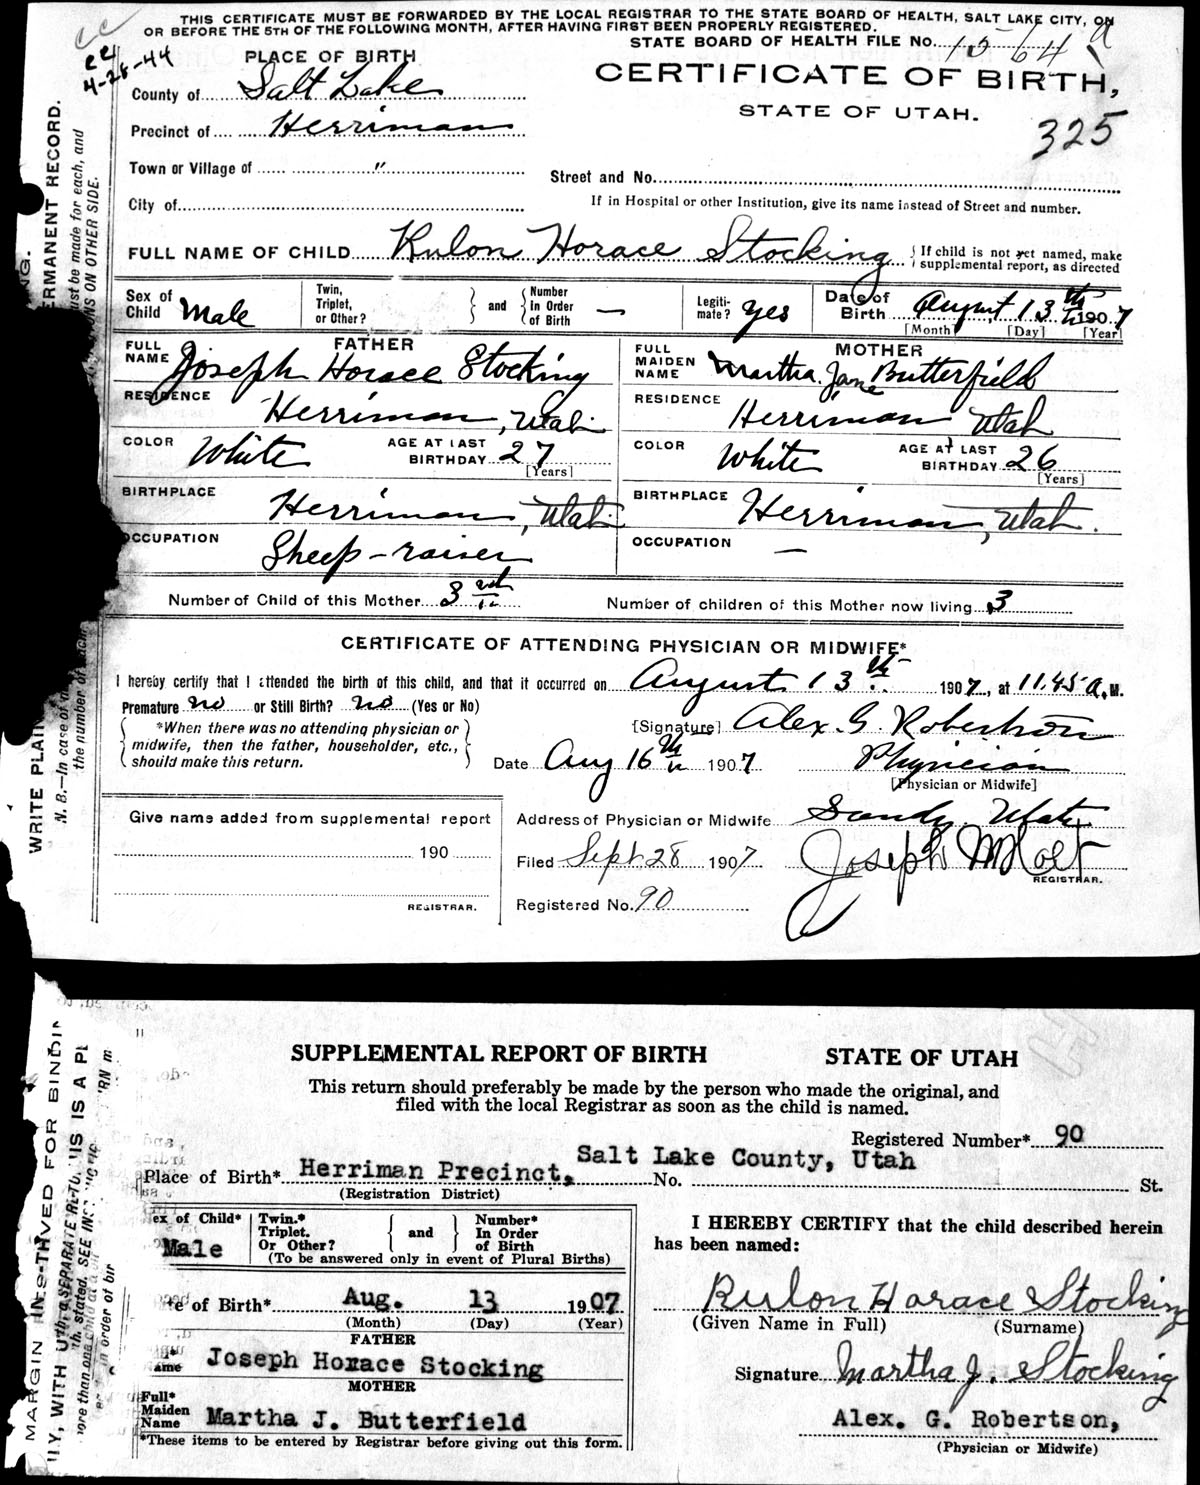 THIS CERTIFICATE MUST BE FORWARDED BY THE LOCAL REGISTRAR TO THE STATE BOARD OF HEALTH, SALT LAKE CITY, ON
OR BEFORE THE 5TH OF THE FOLLOWING MONTH, AFTER HAVING FIRST BEEN PROPERLY REGISTERED.
STATE BOARD OF HEALTH FILE No. 15 64 a
cc
4-28-44
PLACE OF BIRTH
CERTIFICATE OF BIRTH,
STATE OF UTAH.
325
County of Salt Lake
Precinct of Herriman
Town or Village of "
Street and No.
City of
If in Hospital or other Institution, give its name instead of Street and number.
FULL NAME OF CHILD Rulon Horace Stocking
{If child is not yet named, make
supplemental report, as directed
Sex of Child Male
Twin, Triplet, or Other? } and { Number In Order of Birth —
Legitimate? Yes
Date of Birth August 13th 1907
[Month] [Day] [Year]
FATHER
FULL NAME Joseph Horace Stocking
RESIDENCE Herriman, Utah
COLOR White AGE AT LAST BIRTHDAY 27
[Years]
BIRTHPLACE Herriman, Utah
OCCUPATION Sheep-raiser
MOTHER
FULL MAIDEN NAME Martha Jane Butterfield
RESIDENCE Herriman Utah
COLOR White AGE AT LAST BIRTHDAY 26
[Years]
BIRTHPLACE Herriman, Utah.
OCCUPATION —
Number of Child of this Mother 3rd Number of children of this Mother now living 3
CERTIFICATE OF ATTENDING PHYSICIAN OR MIDWIFE*
I hereby certify that I attended the birth of this child, and that it occurred on August 13th 1907, at 11.45 a.M.
Premature no or Still Birth? no (Yes or No)
*When there was no attending physician or
midwife, then the father, householder, etc.,
should make this return.
[Signature] Alex. G. Robertson
Date Aug 16th 1907 Physician
[Physician or Midwife]
Give name added from supplemental report
190
REGISTRAR.
Address of Physician or Midwife Sandy Utah
Filed Sept 28 1907 Joseph M Holt
REGISTRAR.
Registered No. 90
WRITE PLAIN
ERMANENT RECORD.
N. B.—In case of
the number of
must be made for each, and
ONS ON OTHER SIDE.
SUPPLEMENTAL REPORT OF BIRTH STATE OF UTAH
This return should preferably be made by the person who made the original, and
filed with the local Registrar as soon as the child is named.
Registered Number* 90
Place of Birth* Herriman Precinct, Salt Lake County, Utah No. St.
(Registration District)
ex of Child* Male
Twin.* Triplet. Or Other? { and } Number* In Order of Birth
(To be answered only in event of Plural Births)
te of Birth* Aug. 13 1907
(Month) (Day) (Year)
FATHER
ame Joseph Horace Stocking
MOTHER
Full* Maiden Name Martha J. Butterfield
*These items to be entered by Registrar before giving out this form.
I HEREBY CERTIFY that the child described herein
has been named:
Rulon Horace Stocking
(Given Name in Full) (Surname)
Signature Martha J. Stocking
Alex. G. Robertson,
(Physician or Midwife)
MARGIN
FOR BINDIN
LY, WITH
IS IS A P
SEPARATE
stated. SEE
more than one
order of bir